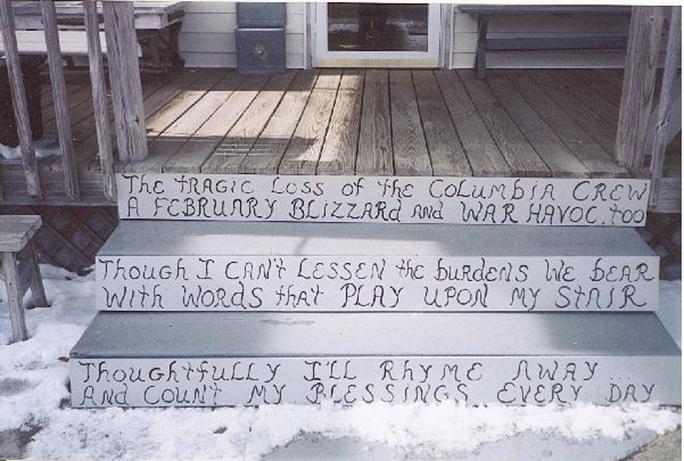 The tragic Loss of the Columbia Crew
A February Blizzard and War Havoc, too
Though I can't Lessen the burdens We bear
With Words that Play upon my Stair
Thoughtfully I'll Rhyme Away...
And Count My Blessings Every Day